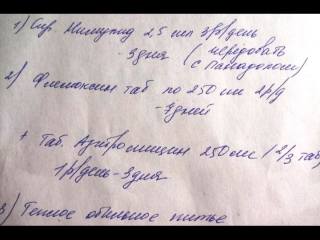 1) Сир. Нимулид 25 мл 3р/день
- 3дня ( чередовать
с Панадолом)
2) Флемоксин таб по 250 мг 2р/д
- 7дней
+ Таб. Азитромицин 250мг (2/3 таб)
1р/день - 3дня
3) Теплое обильное питье